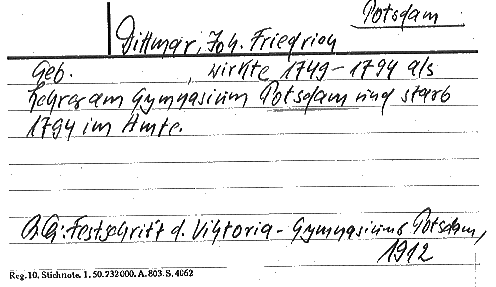 Potsdam
Dittmar, Joh. Friedrich
Geb. , wirkte 1749-1794 als
Lehrer am Gymnasium Potsdam und starb
1794 im Amte.
Festschrift d. Viktoria-Gymnasiums Potsdam,
1912
Reg. 10. Stichnote. 1. 50. 732000. A. 803. S. 4062